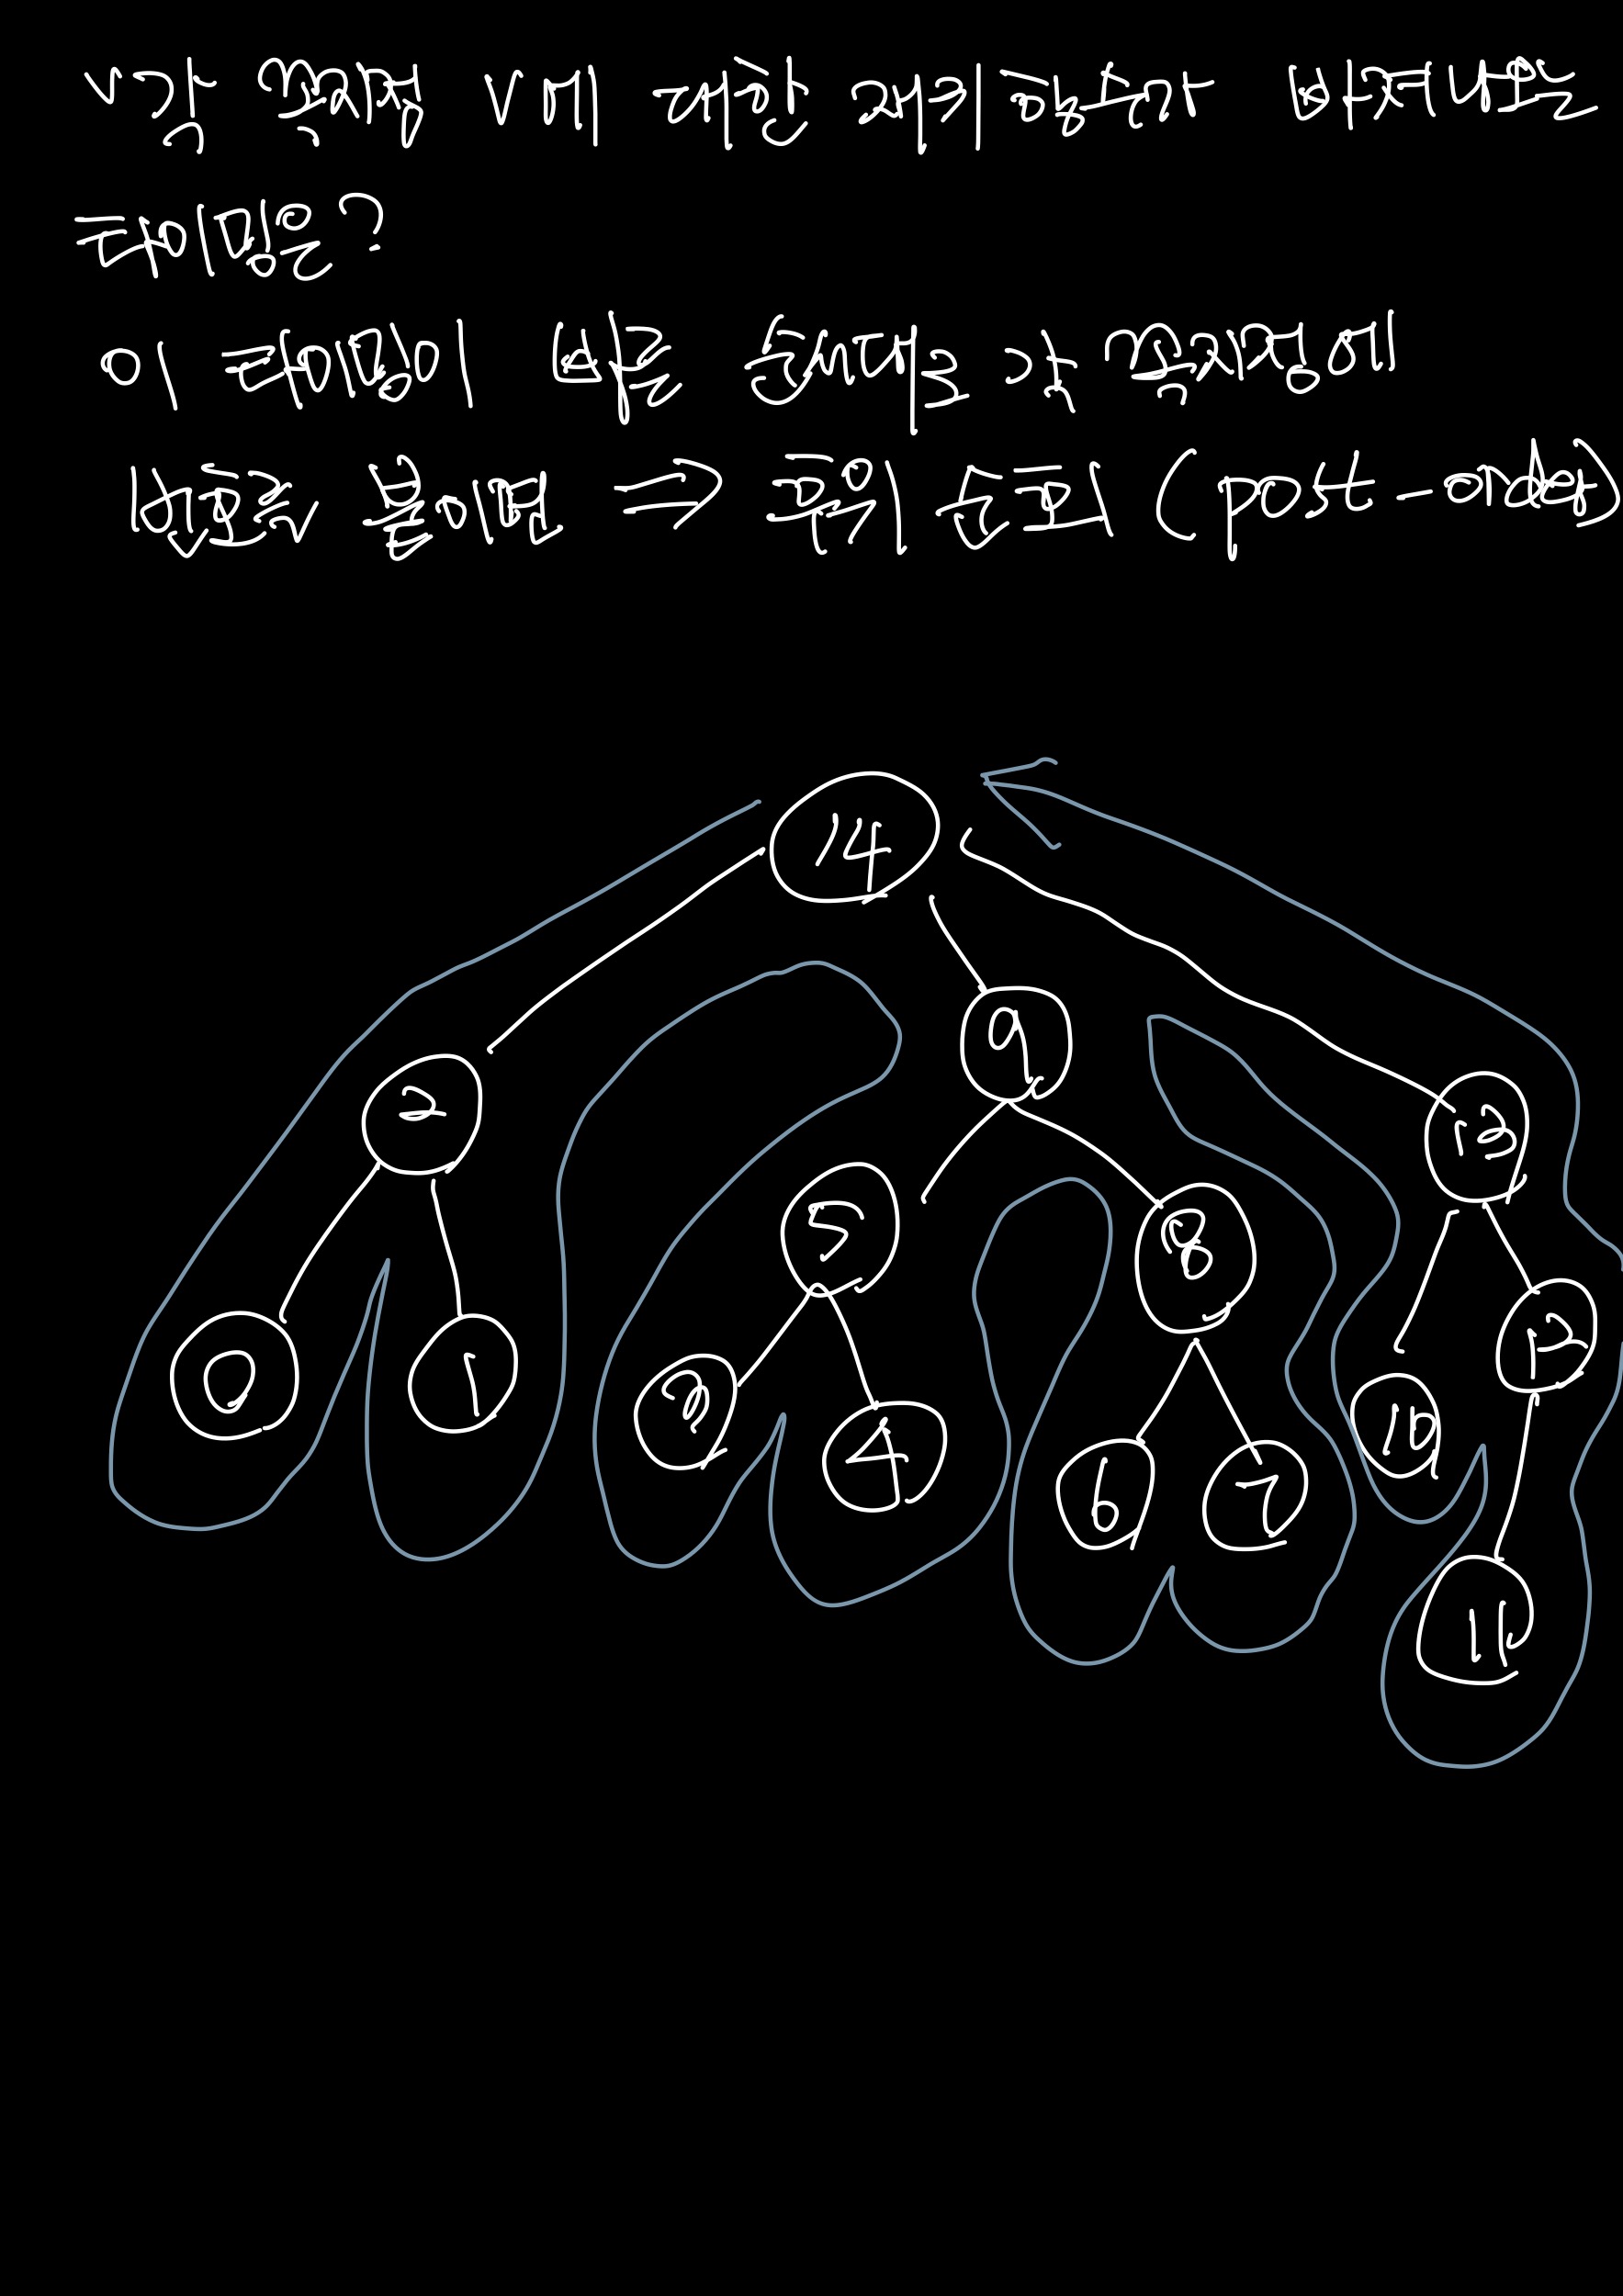 각 꼭짓점 v에 대한 재귀 함수가 빠져나오는
타이밍은?
이 타이밍이 빠른 순서대로 각 꼭짓점에
번호를 붙이면 ⇒ 후위 순회 (post-order)
14
9
2 13
5 8
0 1 3 4 12
6 7 10
11